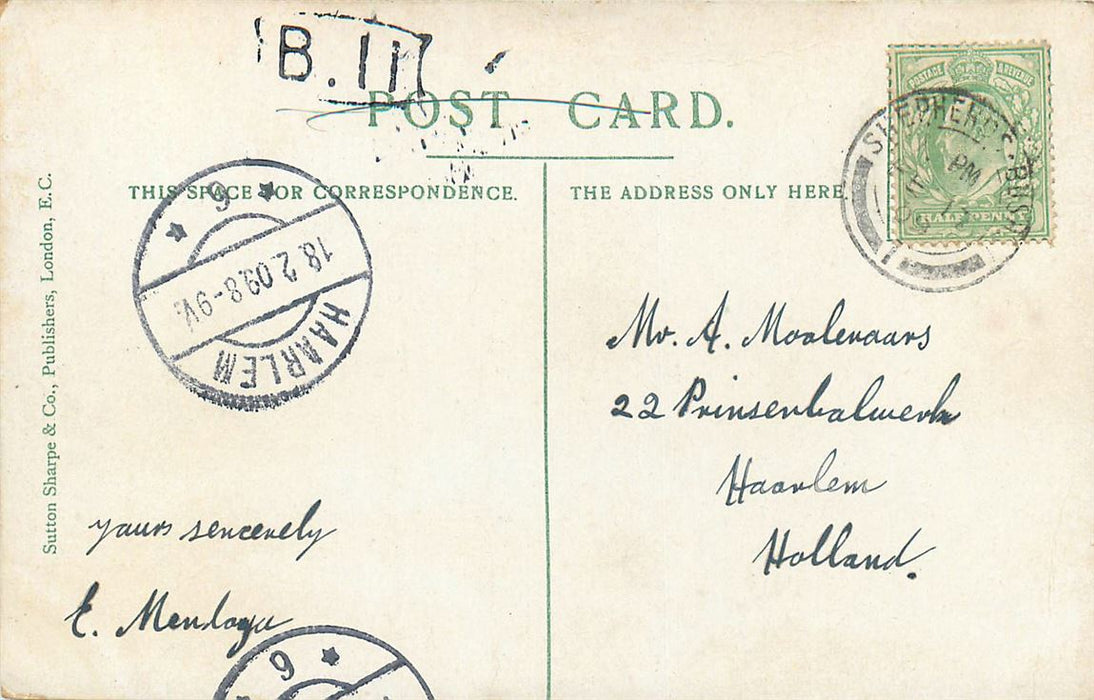 B.11
POST CARD.
THIS SPACE FOR CORRESPONDENCE.
THE ADDRESS ONLY HERE
POSTAGE & REVENUE
HALF PENNY
SHEPHERD'S BUSH
PM
6
18.2.09.8-9V.
HAARLEM
Sutton Sharpe & Co., Publishers, London, E.C.
yours sencerely
E. Mendoza
Mr. A. Moolenaars
22 Prinsenbolwerk
Haarlem
Holland.
6